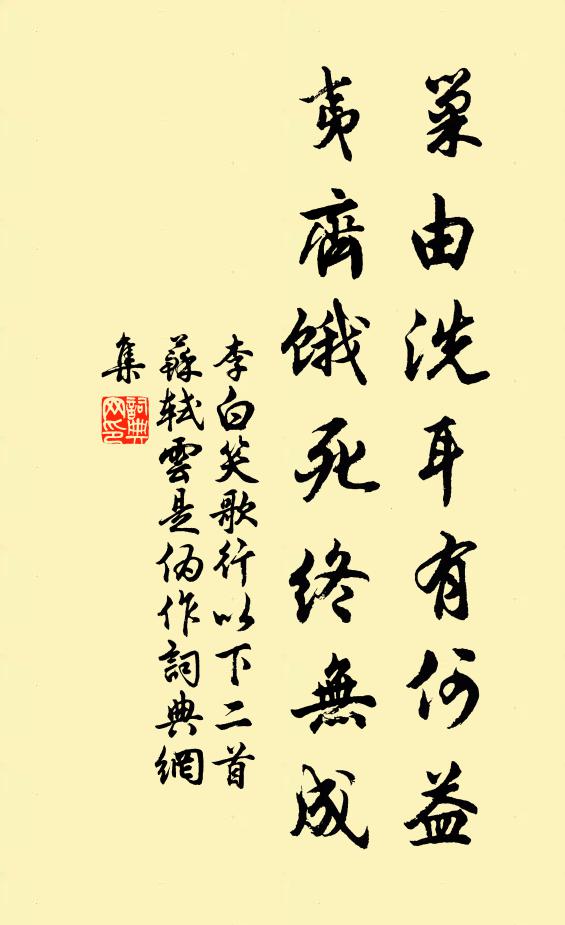 巢由洗耳有何益
夷齊餓死終無成
李白笑歌行以下二首
蘇軾雲是偽作詞典網
集
詞典
网印